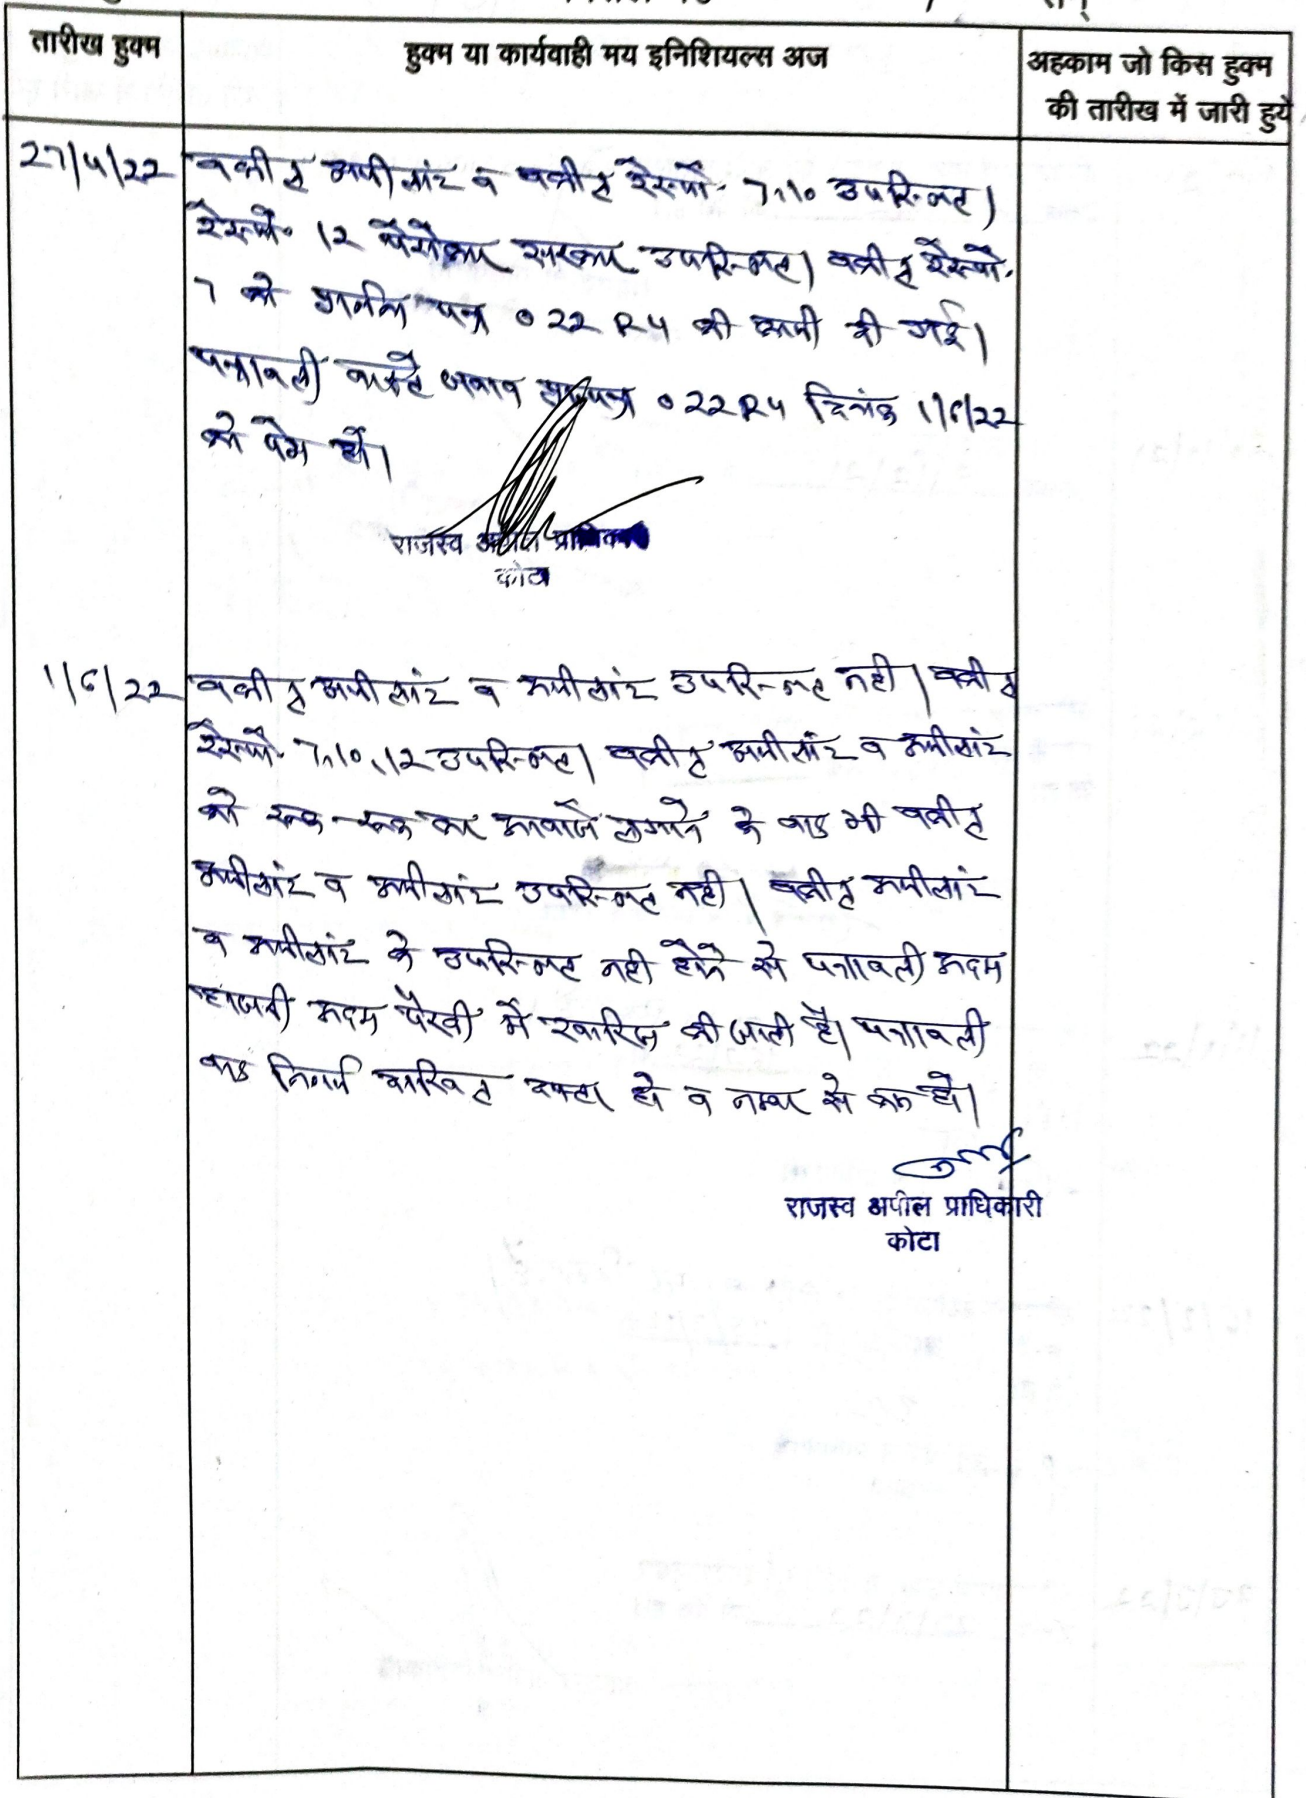 तारीख हुक्म
हुक्म या कार्यवाही मय इनिशियल्स अज
अहकाम जो किस हुक्म
की तारीख में जारी हुये
27/4/22 वकील अपीलांट व वकील रेस्पो. 7,10 उपस्थित।
रेस्पो. 12 पैरोकार सरकार उपस्थित। वकील रेस्पो.
7 को प्रार्थना पत्र O 22 R 4 की कापी दी गई।
पत्रावली वास्ते जवाब प्रा. पत्र O 22 R 4 दिनांक 1/6/22
को पेश हो।
राजस्व अपील प्राधिकारी
कोटा
1/6/22 वकील अपीलांट व अपीलांट उपस्थित नही। वकील
रेस्पो. 7,10,12 उपस्थित। वकील अपीलांट व अपीलांट
को रूक-रूक कर आवाजे लगाने के बाद भी वकील
अपीलांट व अपीलांट उपस्थित नही। वकील अपीलांट
व अपीलांट के उपस्थित नही होने से पत्रावली अदम
हाजरी अदम पैरवी मे खारिज की जाती है। पत्रावली
बाद निर्णय दाखिल दफ्तर हो व नम्बर से कम हो।
राजस्व अपील प्राधिकारी
कोटा